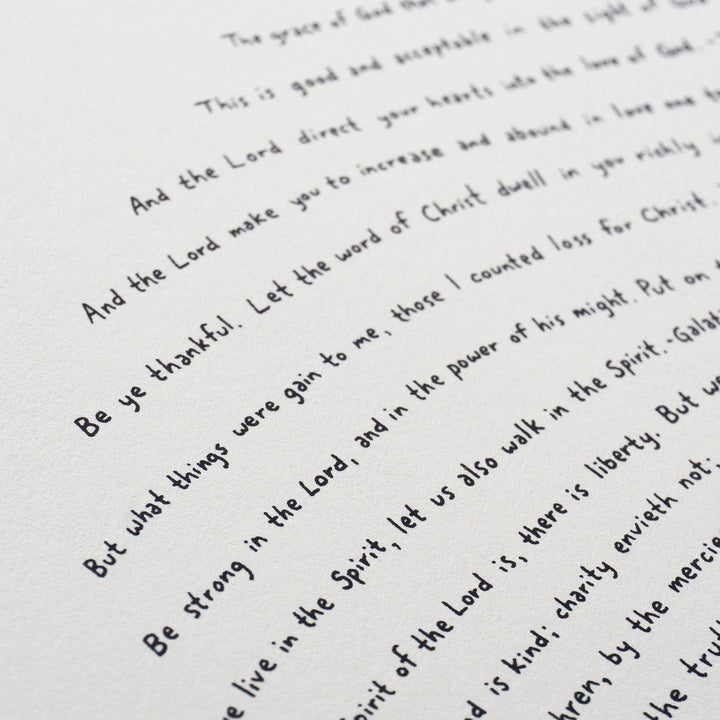 The grace of God that
This is good and acceptable in the sight of God
And the Lord direct your hearts into the love of God. -
And the Lord make you to increase and abound in love one
Be ye thankful. Let the word of Christ dwell in you richly
But what things were gain to me, those I counted loss for Christ.
Be strong in the Lord, and in the power of his might. Put on
live in the Spirit, let us also walk in the Spirit. -Galat
Spirit of the Lord is, there is liberty. But we
is kind; charity envieth not;
hren, by the mercie
the trut